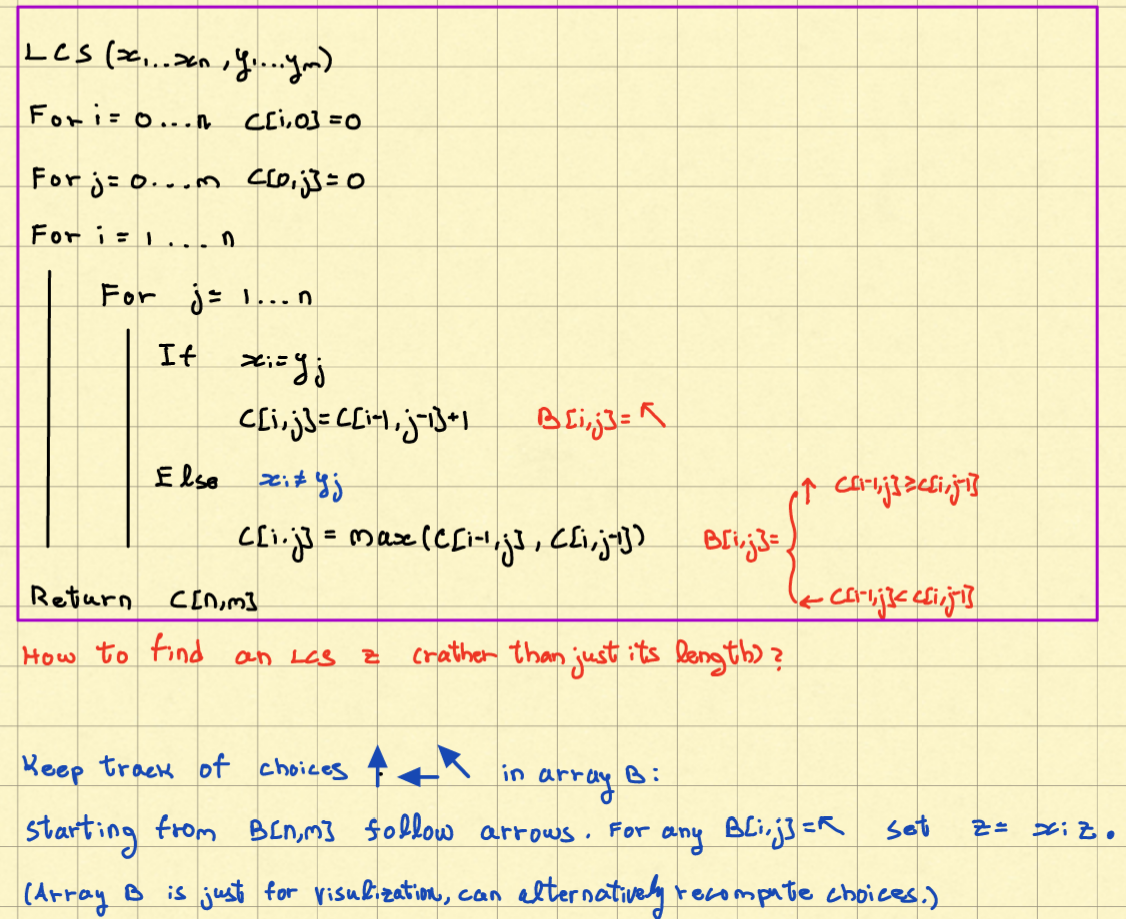 LCS (x₁...xₙ, y₁...yₘ)
For i = 0...n C[i,0] = 0
For j = 0...m C[0,j] = 0
For i = 1 .... n
For j = 1...n
If xᵢ = yⱼ
C[i,j] = C[i-1, j-1] + 1 B[i,j] = ↖
Else xᵢ ≠ yⱼ
↑ C[i-1,j] ≥ C[i,j-1]
C[i.j] = max (C[i-1,j], C[i,j-1]) B[i,j] = {
← C[i-1,j] < C[i,j-1]
Return C[n,m]
How to find an LCS z (rather than just its length)?
Keep track of choices ↑ ← ↖ in array B:
starting from B[n,m] follow arrows. For any B[i,j] = ↖ set z = xᵢ z.
(Array B is just for visulization, can alternatively recompute choices.)